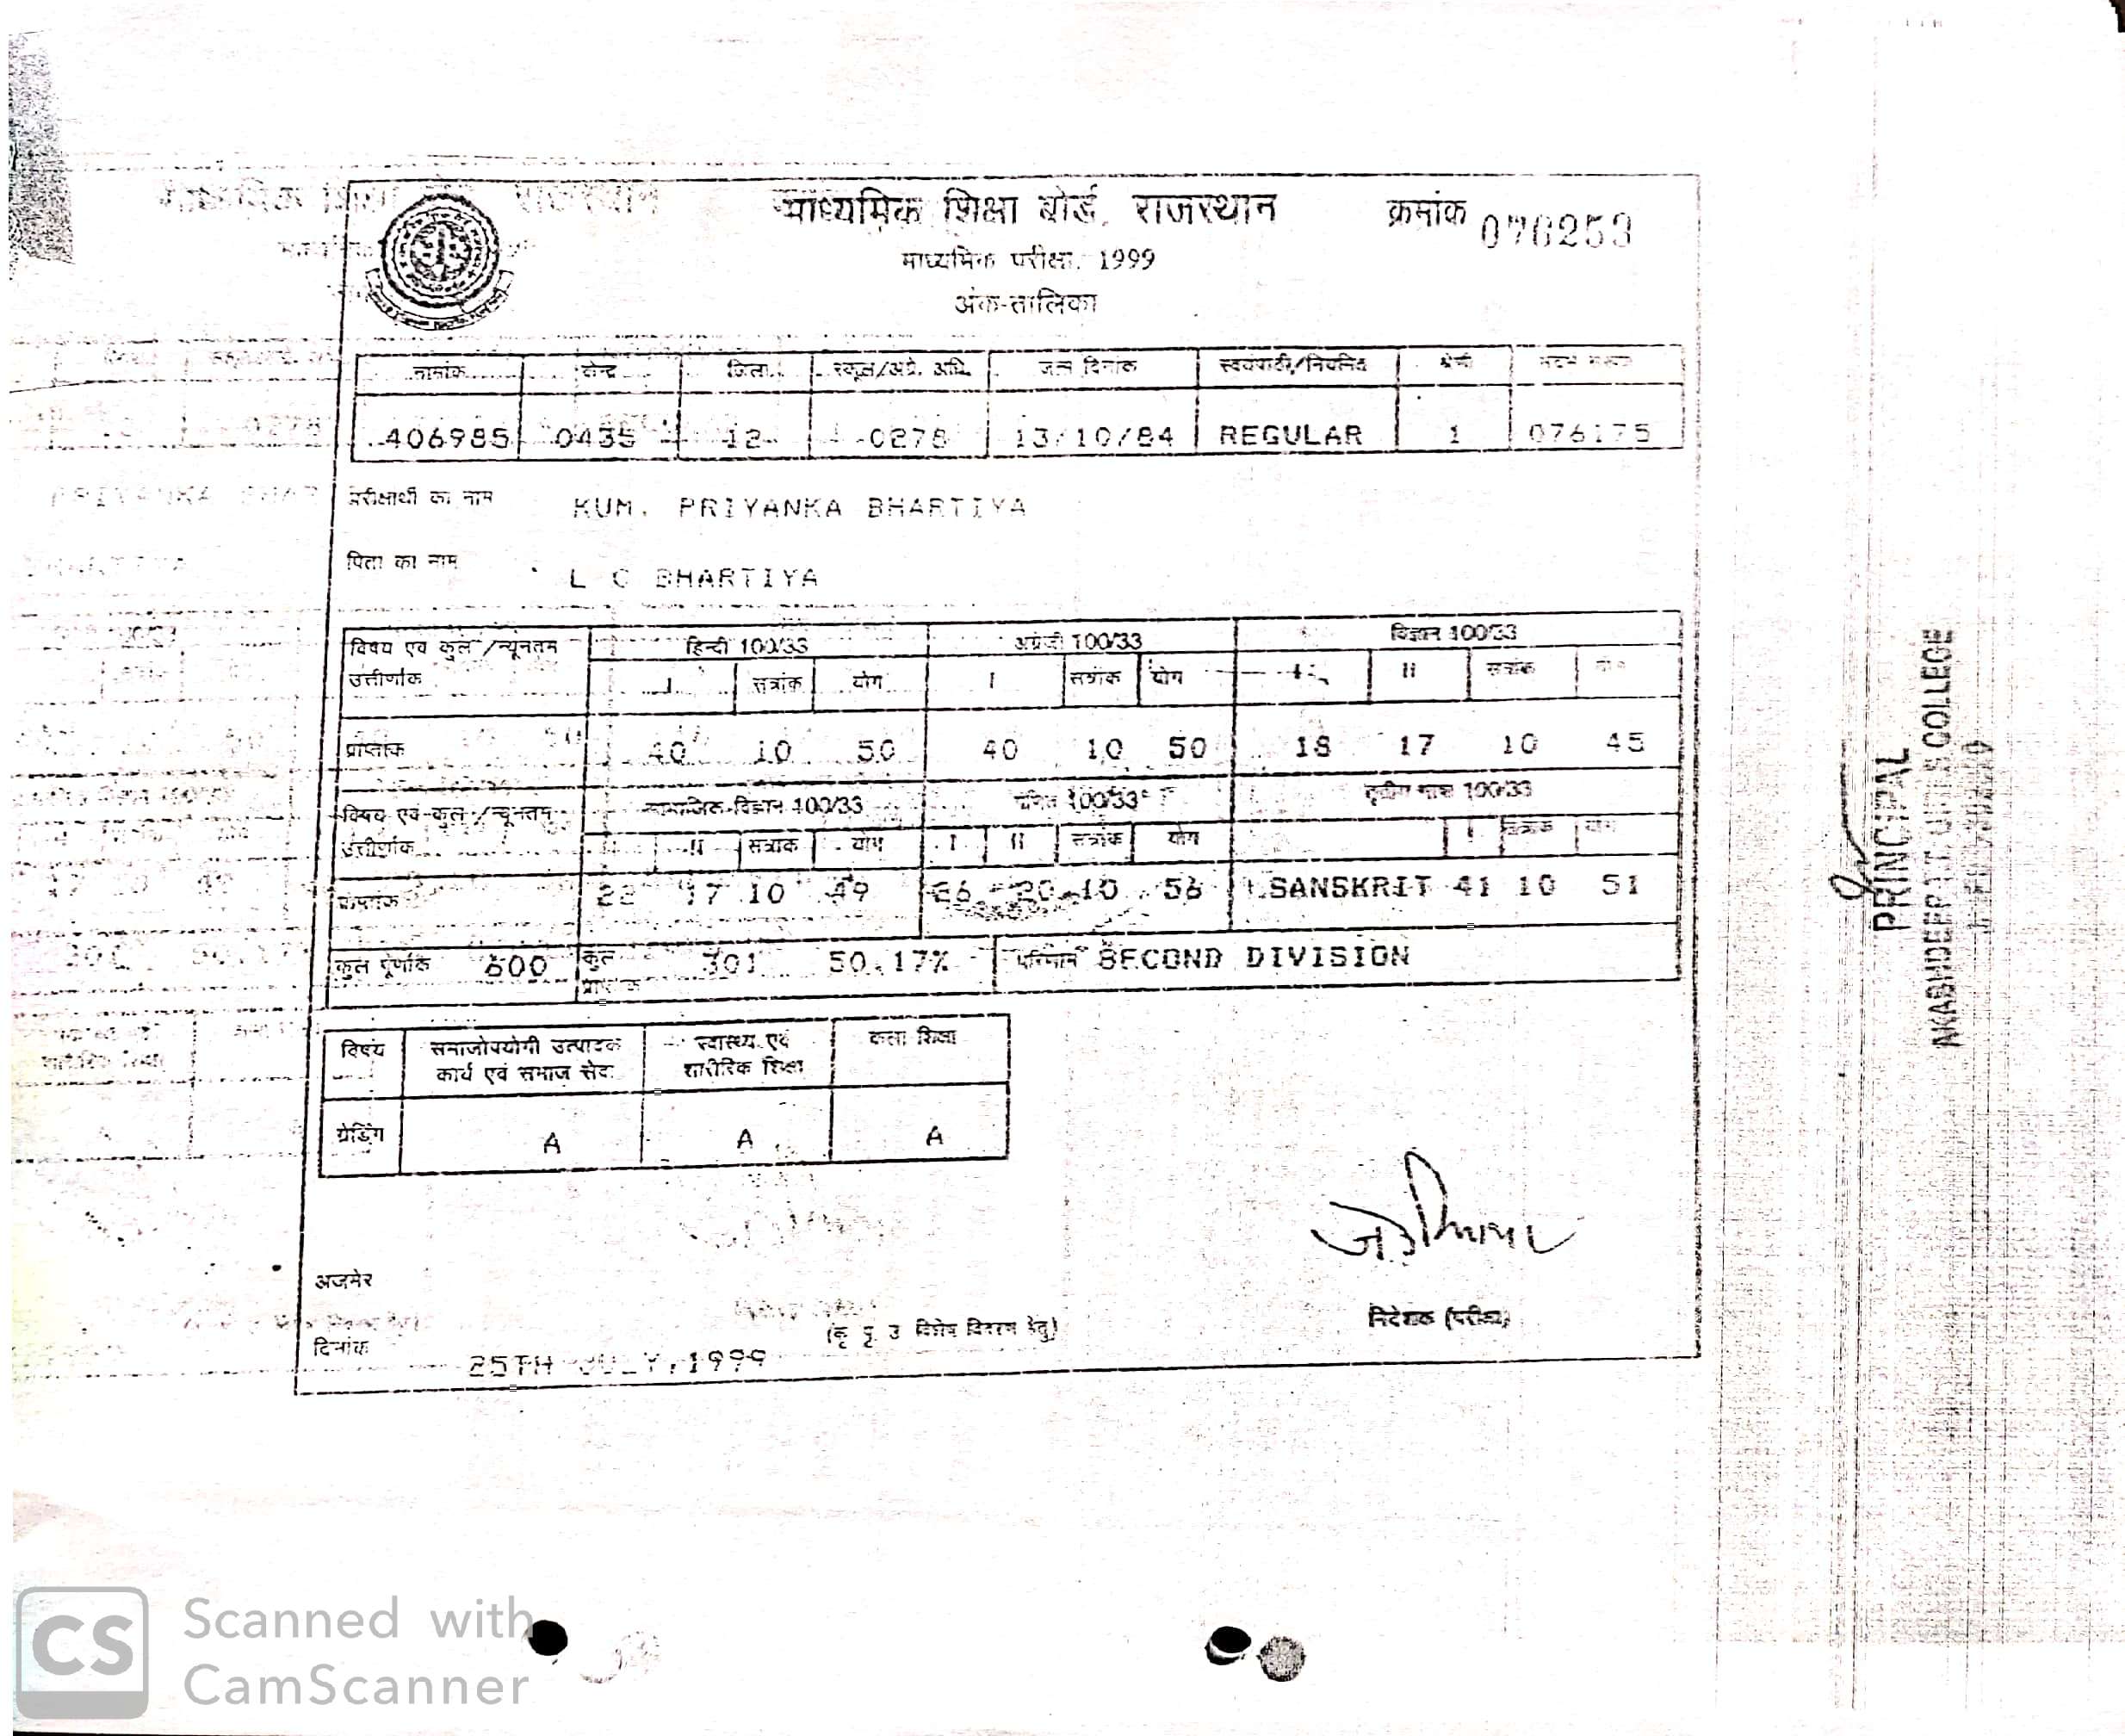 माध्यमिक शिक्षा बोर्ड, राजस्थान
क्रमांक 076253
माध्यमिक परीक्षा, 1999
अंक-तालिका
नामांक केन्द्र जिला स्कूल/अग्रे. अधि. जन्म दिनांक स्वयंपाठी/नियमित श्रेणी
406985 0435 12 0278 13/10/84 REGULAR 1 076175
परीक्षार्थी का नाम KUM. PRIYANKA BHARTIYA
पिता का नाम L C BHARTIYA
विषय एवं कुल/न्यूनतम हिन्दी 100/33 अंग्रेजी 100/33 विज्ञान 100/33
उत्तीर्णांक I सत्रांक योग I सत्रांक योग I II सत्रांक योग
प्राप्तांक 40 10 50 40 10 50 18 17 10 45
विषय एवं कुल/न्यूनतम सामाजिक विज्ञान 100/33 गणित 100/33 तृतीय भाषा 100/33
उत्तीर्णांक I II सत्रांक योग I II सत्रांक योग I सत्रांक योग
प्राप्तांक 22 17 10 49 26 20 10 56 SANSKRIT 41 10 51
कुल पूर्णांक 600 कुल प्राप्तांक 301 50.17% परिणाम SECOND DIVISION
विषय समाजोपयोगी उत्पादक स्वास्थ्य एवं कला शिक्षा
कार्य एवं समाज सेवा शारीरिक शिक्षा
ग्रेडिंग A A A
अजमेर
निदेशक (परीक्षा)
(कृ पृ उ विशेष विवरण हेतु)
दिनांक 25TH JULY, 1999
PRINCIPAL
COLLEGE
CS Scanned with
CamScanner